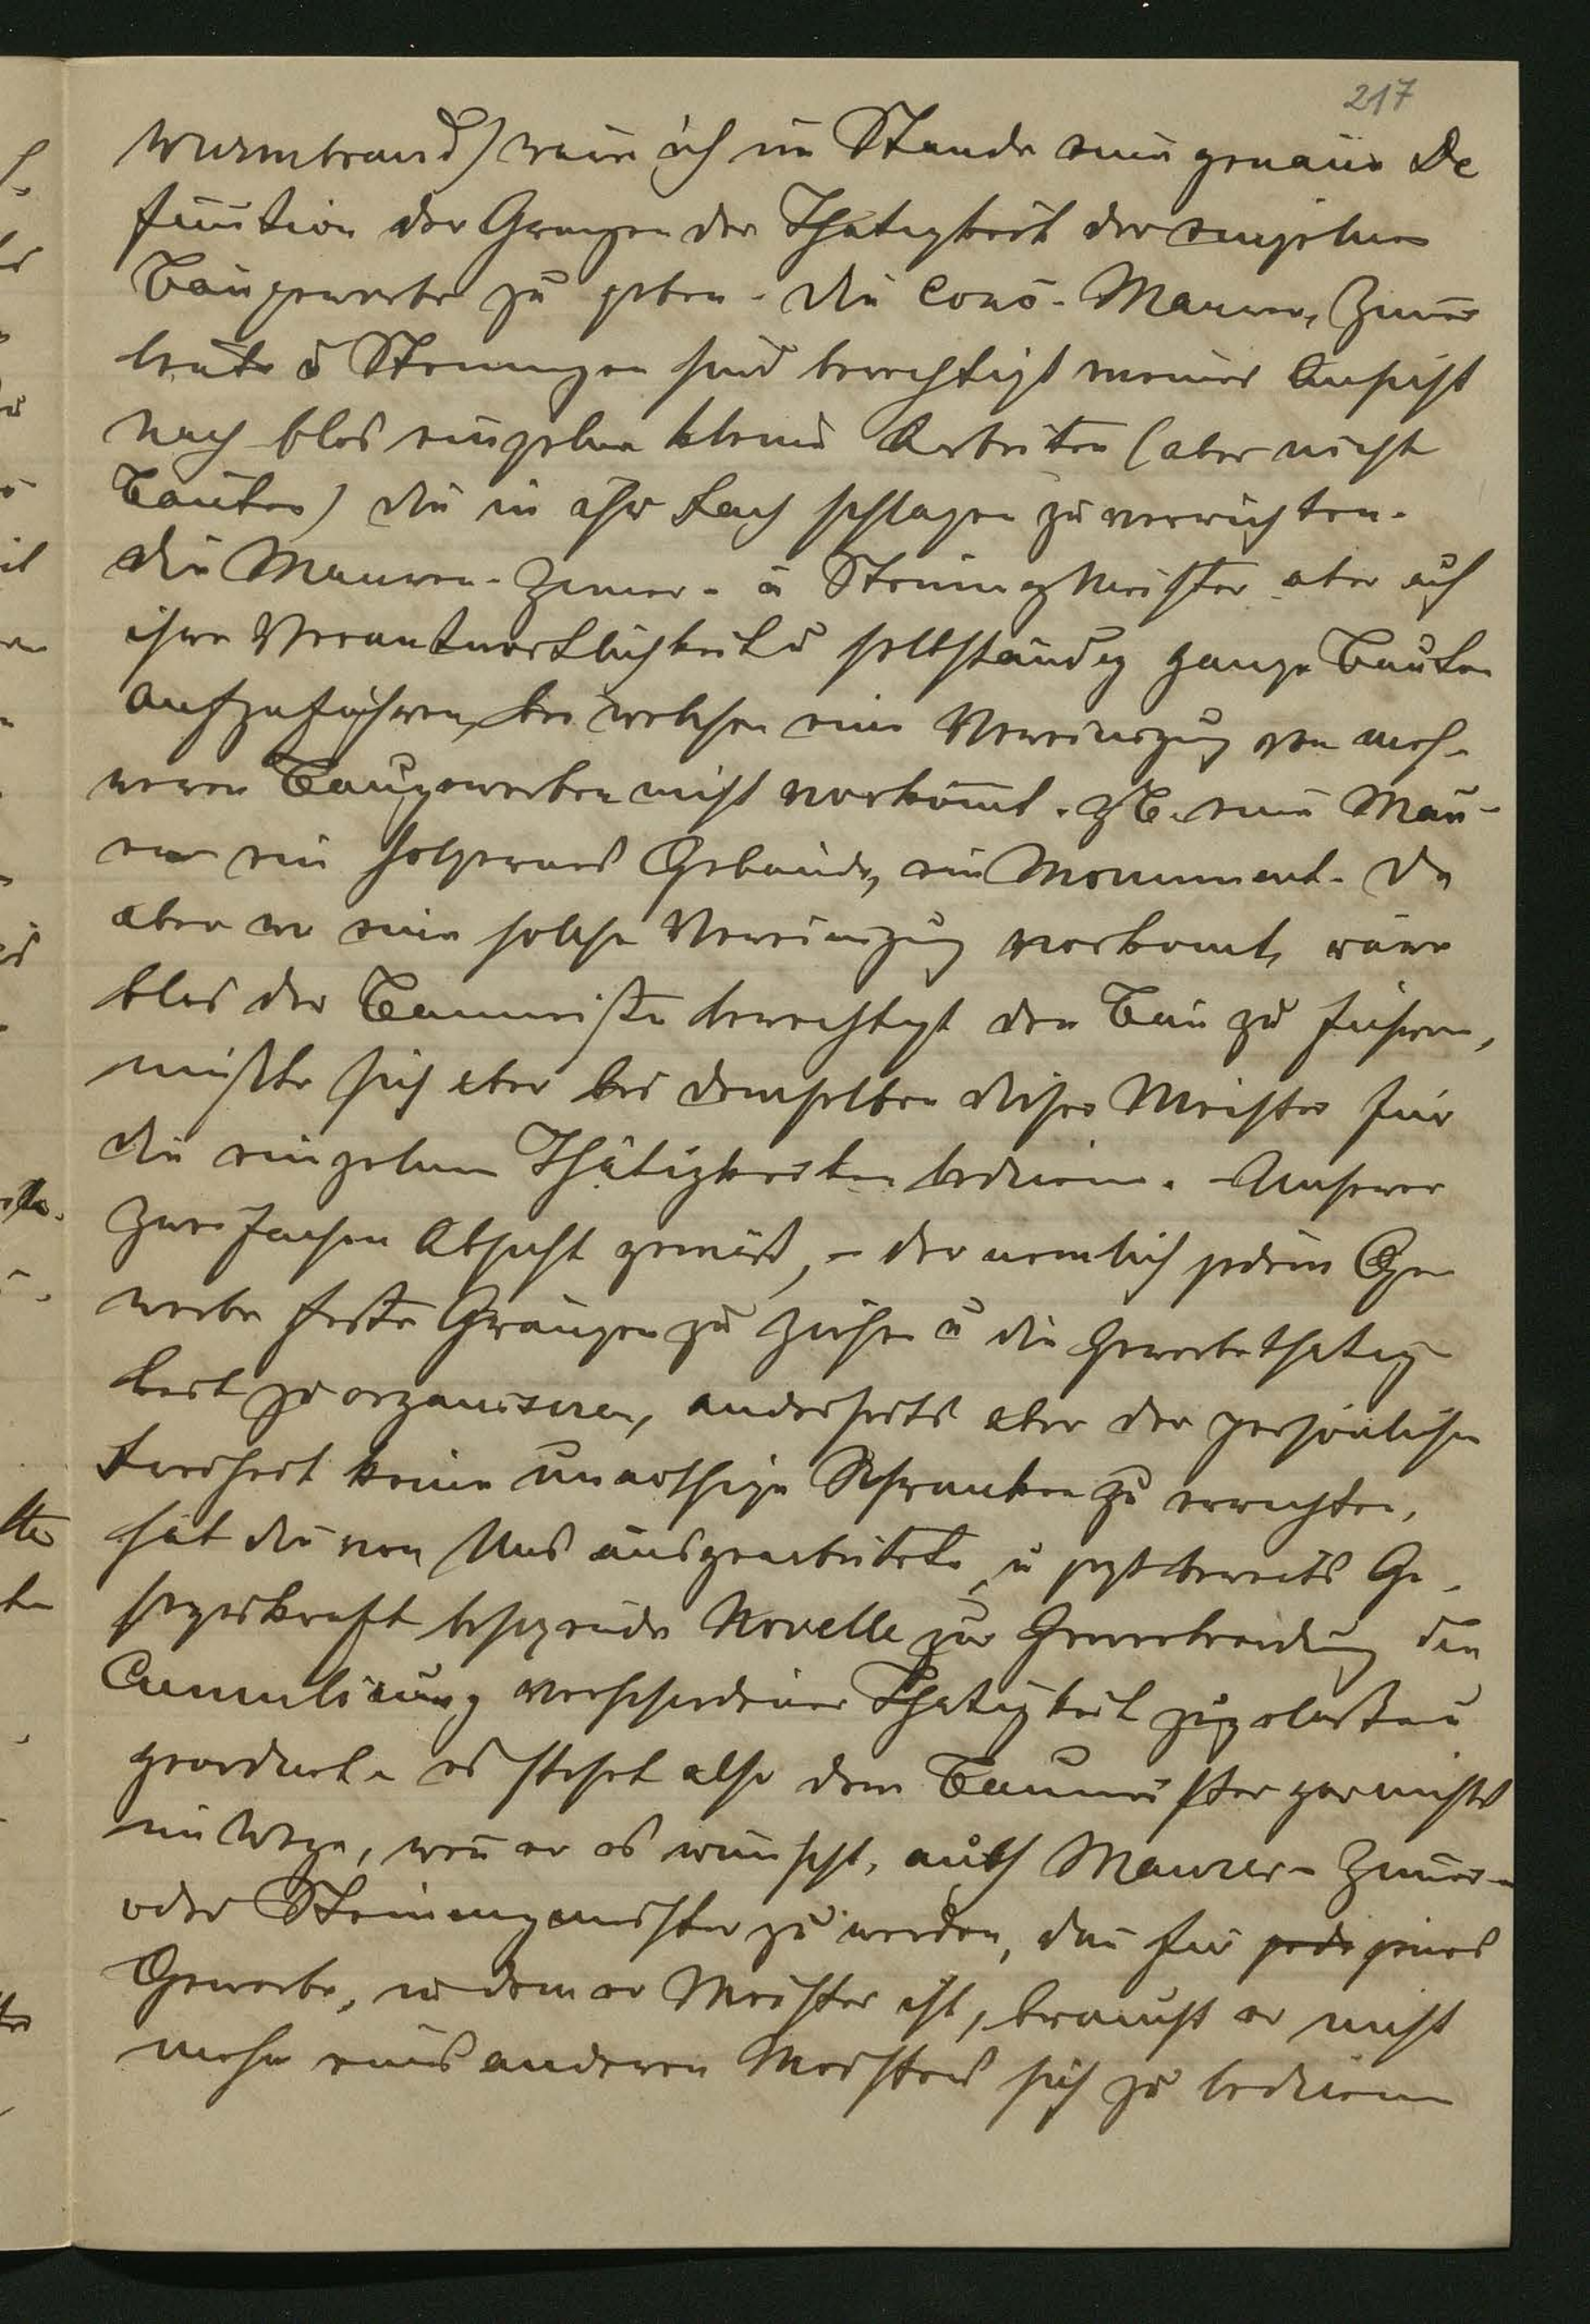 217
Wurmbrand) wäre ich im Stande eine genaue De
finition der Gränzen der Thätigkeit der einzelnen
Baugewerbe zu geben. Die Conc. Maurer, Zimmer
leute u Steinmetzen sind berechtigt meiner Ansicht
nach blos einzelne kleine Arbeiten (aber nicht
Bauten) die in ihr Fach schlagen zu verrichten.
die Maurer- Zimer- u Steinmetzmeister aber auf
ihre Verantwortlichkeit u selbständig ganze Bauten
aufzuführen, bei welchen eine Vereinigung von meh-
reren Baugewerben nicht vorkommt. ZB. eine Mau-
er ein hölzernes Gebäude, ein Monument. Da
aber wo eine solche Vereinigung vorkomt, wäre
blos der Baumeister berechtigt den Bau zu führen,
müßte sich aber bei demselben dieser Meister für
die einzelnen Thätigkeiten bedienen. Unserer
zweifachen Absicht gemäß, – der nemlich jedem Ge
werbe feste Gränzen zu ziehen u die Gewerbethätig
keit zu organisiren, anderseits aber der persönlichen
Freiheit keine unnöthige Schranken zu errichten,
hat die von Uns ausgearbeitete u jezt bereits Ge-
sezeskraft besizende Novelle zur Gewerbeordnung die
Cumulirung verschiedener Thätigkeit zugelassen u
geordnet. es stehet also dem Baumeister gar nichts
im Wege, wenn er es wünscht, auch Maurer- Zimer-
oder Steinmetzmeister zu werden, dan für jede jenes
Gewerbe, in dem er Meister ist, braucht er nicht
mehr eines anderen Meisters sich zu bedienen